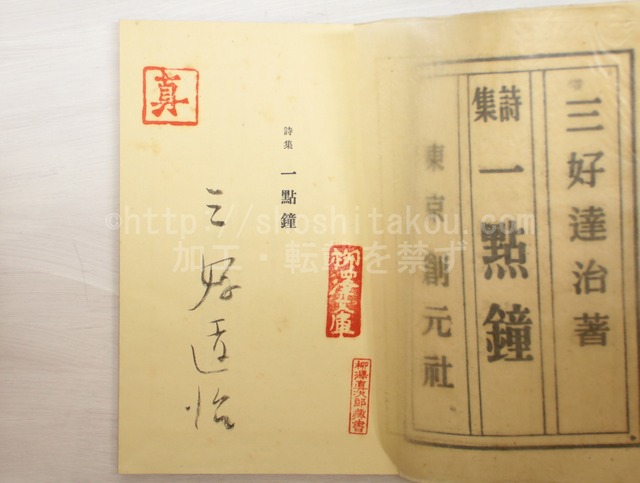 三好達治著
詩集
一點鐘
東京 創元社
詩集 一點鐘
三好達治
真
柳澤文庫
柳澤真次郎蔵書
©http://shoshitakou.com
加工・転載を禁ず